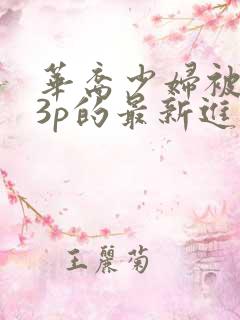 華裔少婦被
3p的最新進
王麗菊